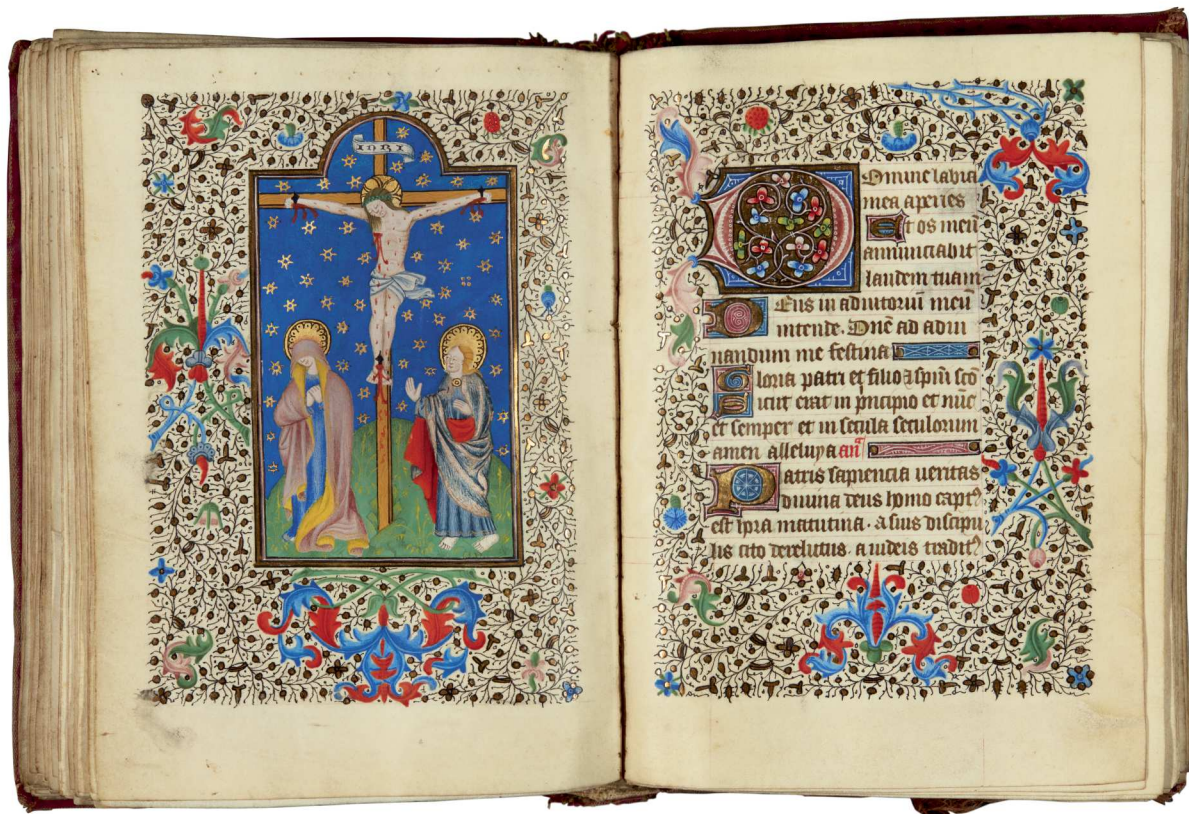 IORI
Domine labia
mea aperies
Et os meū
annunciabit
laudem tuam
Deus in adiutoriū meū
intende. Dnē ad adiu
uandum me festina
Gloria patri et filio & spiriū scō
Sicut erat in pncipio et nūc
et semper et in secula seculorum
amen alleluya anᵃ
Patris sapiencia ueritas
diuina deus homo captꝰ
est hora matutina · a suis discipu
lis cito derelictus · a iudeis traditꝰ